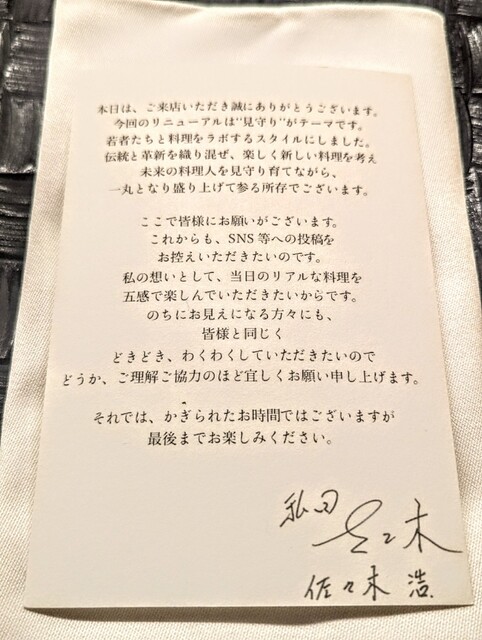 本日は、ご来店いただき誠にありがとうございます。
今回のリニューアルは"見守り"がテーマです。
若者たちと料理をラボするスタイルにしました。
伝統と革新を織り混ぜ、楽しく新しい料理を考え
未来の料理人を見守り育てながら、
一丸となり盛り上げて参る所存でございます。
ここで皆様にお願いがございます。
これからも、SNS等への投稿を
お控えいただきたいのです。
私の想いとして、当日のリアルな料理を
五感で楽しんでいただきたいからです。
のちにお見えになる方々にも、
皆様と同じく
どきどき、わくわくしていただきたいので
どうか、ご理解ご協力のほど宜しくお願い申し上げます。
それでは、かぎられたお時間ではございますが
最後までお楽しみください。
佐々木 浩